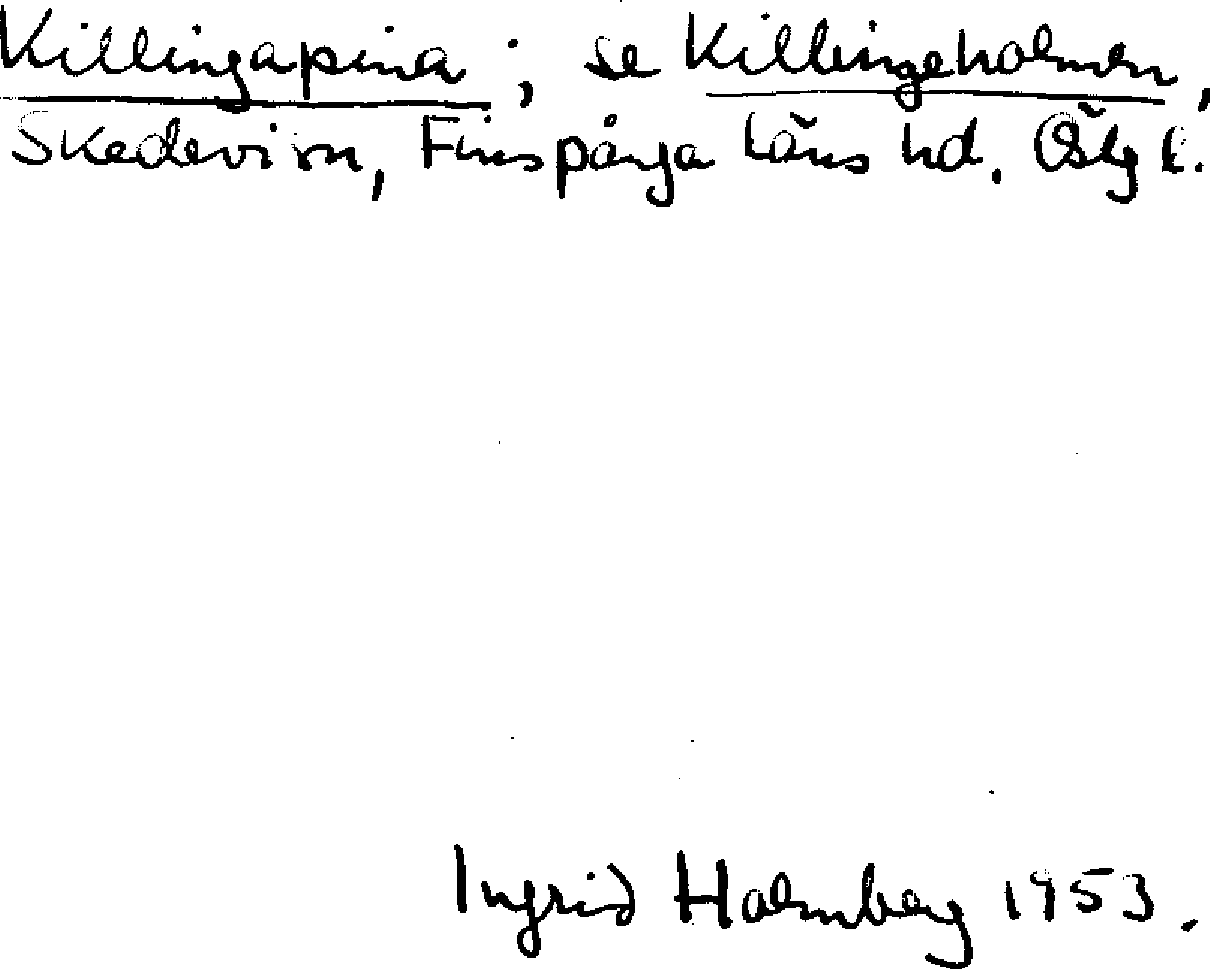 Killingapina; se Killingeholmen,
Skedevi sn, Finspånga läns hd. Östg l.
Ingrid Holmberg 1953.